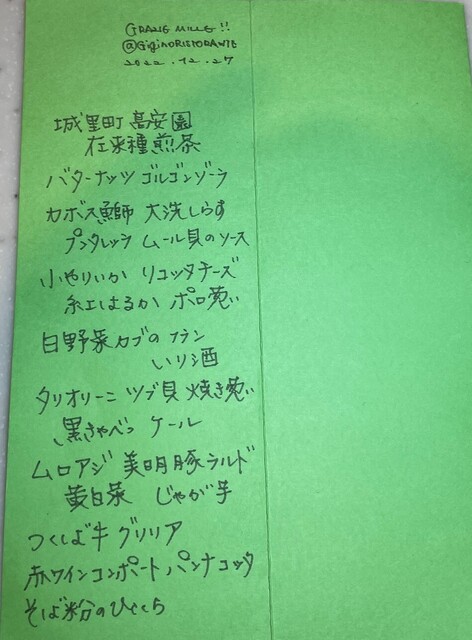 GRAZIE MILLE!!
@GiginoRISTORANTE
2022.12.27
城里町 高安園
在来種煎茶
バターナッツ ゴルゴンゾーラ
カボス鰤 大洗しらす
プンタレッラ ムール貝のソース
小やりいか リコッタチーズ
紅はるか ポロ葱
日野菜カブの フラン
いり酒
タリオリーニ ツブ貝 焼き葱
黒きゃべつ ケール
ムロアジ 美明豚ラルド
黄白菜 じゃが芋
つくしば牛 グリリア
赤ワインコンポート パンナコッタ
そば粉のひとくち